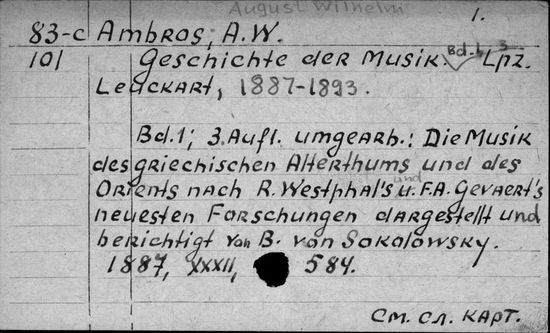 August Wilhelm
1.
83-c Ambros, A.W.
101 Geschichte der Musik. Bd. 1, 3 Lpz.
Leuckart, 1887-1893.
Bd.1; 3.Aufl. umgearb.: Die Musik
des griechischen Alterthums und des
Orients nach R. Westphal's u. F.A. Gevaert's
und
neuesten Forschungen dargestellt und
berichtigt von B. von Sokolowsky.
1887, XXXII, 584.
См. сл. карт.